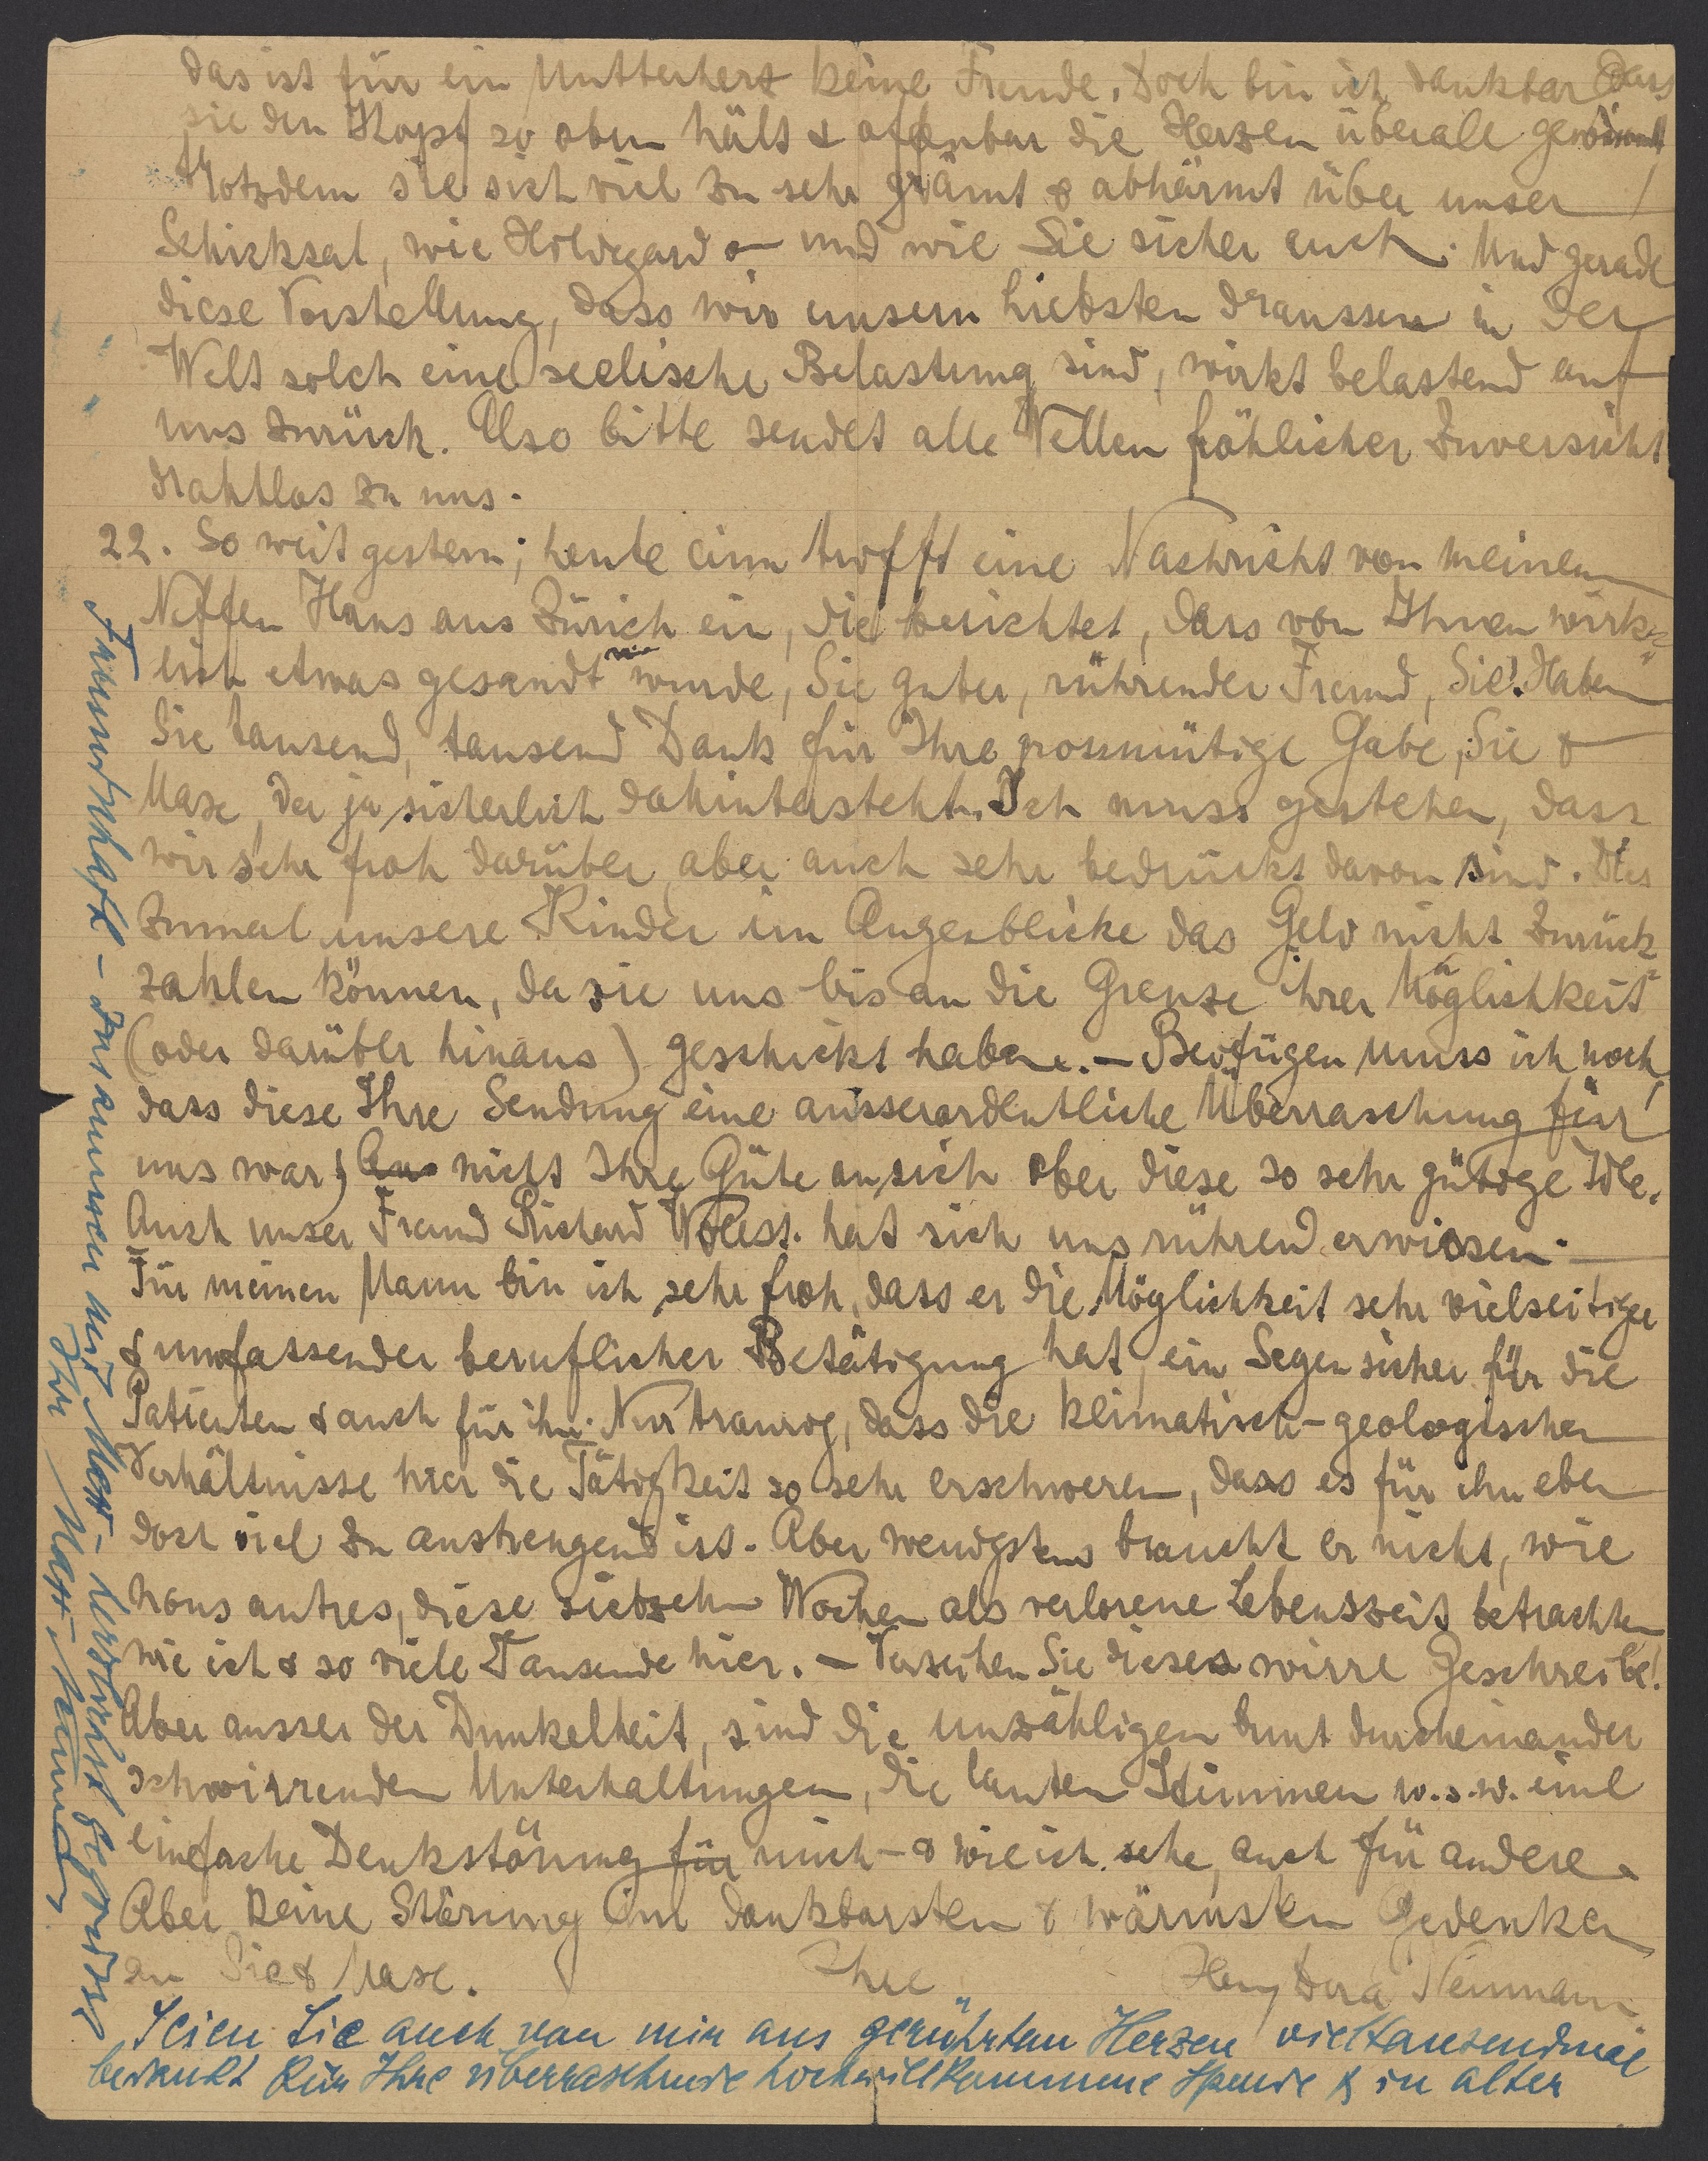 das ist für ein Mutterherz keine Freude. Doch bin ich dankbar dass
sie den Kopf so oben hält & offenbar die Herzen überall gewinnt
trotzdem sie sich viel zu sehr grämt & abhärmt über unser
Schicksal, wie Hildegard – und wie Sie sicher auch. Und gerade
diese Vorstellung, dass wir unsern Liebsten draussen in der
Welt solch eine seelische Belastung sind, wirkt belastend auf
uns zurück. Also bitte sendet alle Wellen fröhlicher Zuversicht
drahtlos zu uns.
22. So weit gestern; heute eine Nachricht von meinem
Neffen Hans aus Zürich ein, die berichtet, dass von Ihnen wirk=
lich etwas gesandt wurde, Sie guter, rührender Freund, Sie! Haben
Sie tausend, tausend Dank für Ihre grossmütige Gabe, Sie &
Maxe, der ja sicherlich dahintersteht. Ich muss gestehen, dass
wir sehr froh darüber aber auch sehr bedrückt davon sind. Dies
zumal unsere Kinder im Augenblicke das Geld nicht zurück=
zahlen können, da sie uns bis an die Grenze ihrer Möglichkeit
(oder darüber hinaus) geschickt haben. – Beifügen muss ich noch,
dass diese Ihre Sendung eine ausserordentliche Überraschung für
uns war; nicht Ihre Güte an sich aber diese so sehr gütige Idee.
Auch unser Freund Richard hat sich uns rührend erwiesen. –
Für meinen Mann bin ich sehr froh, dass er die Möglichkeit sehr vielseitiger
& umfassender beruflicher Betätigung hat, ein Segen sicher für die
Patienten & auch für ihn. Nur traurig, dass die klimatisch-geologischen
Verhältnisse hier die Tätigkeit so sehr erschweren, dass es für ihn eben
doch viel zu anstrengend ist. Aber wenigstens braucht er nicht, wie
nous autres, diese siebzehn Wochen als verlorene Lebenszeit betrachten
wie ich & so viele Tausende hier. – Verzeihen Sie dieses wirre Geschreibe!
Aber ausser der Dunkelheit, sind die unzähligen bunt durcheinander
schwirrenden Unterhaltungen, die lauten Stimmen u.s.w. eine
einfache Denkstörung für mich – & wie ich sehe, auch für andere.
Aber keine Störung im dankbarsten & wärmsten Gedenken
an Sie & Maxe. Ihre Hony Dora Neumann
Seien Sie auch von mir aus gerührtem Herzen vieltausendmal
bedankt für Ihre überraschende hochwillkommene Spende & in alter
Freundschaft – zusammen mit Maxe – herzlichst gegrüsst
Ihr Neumann